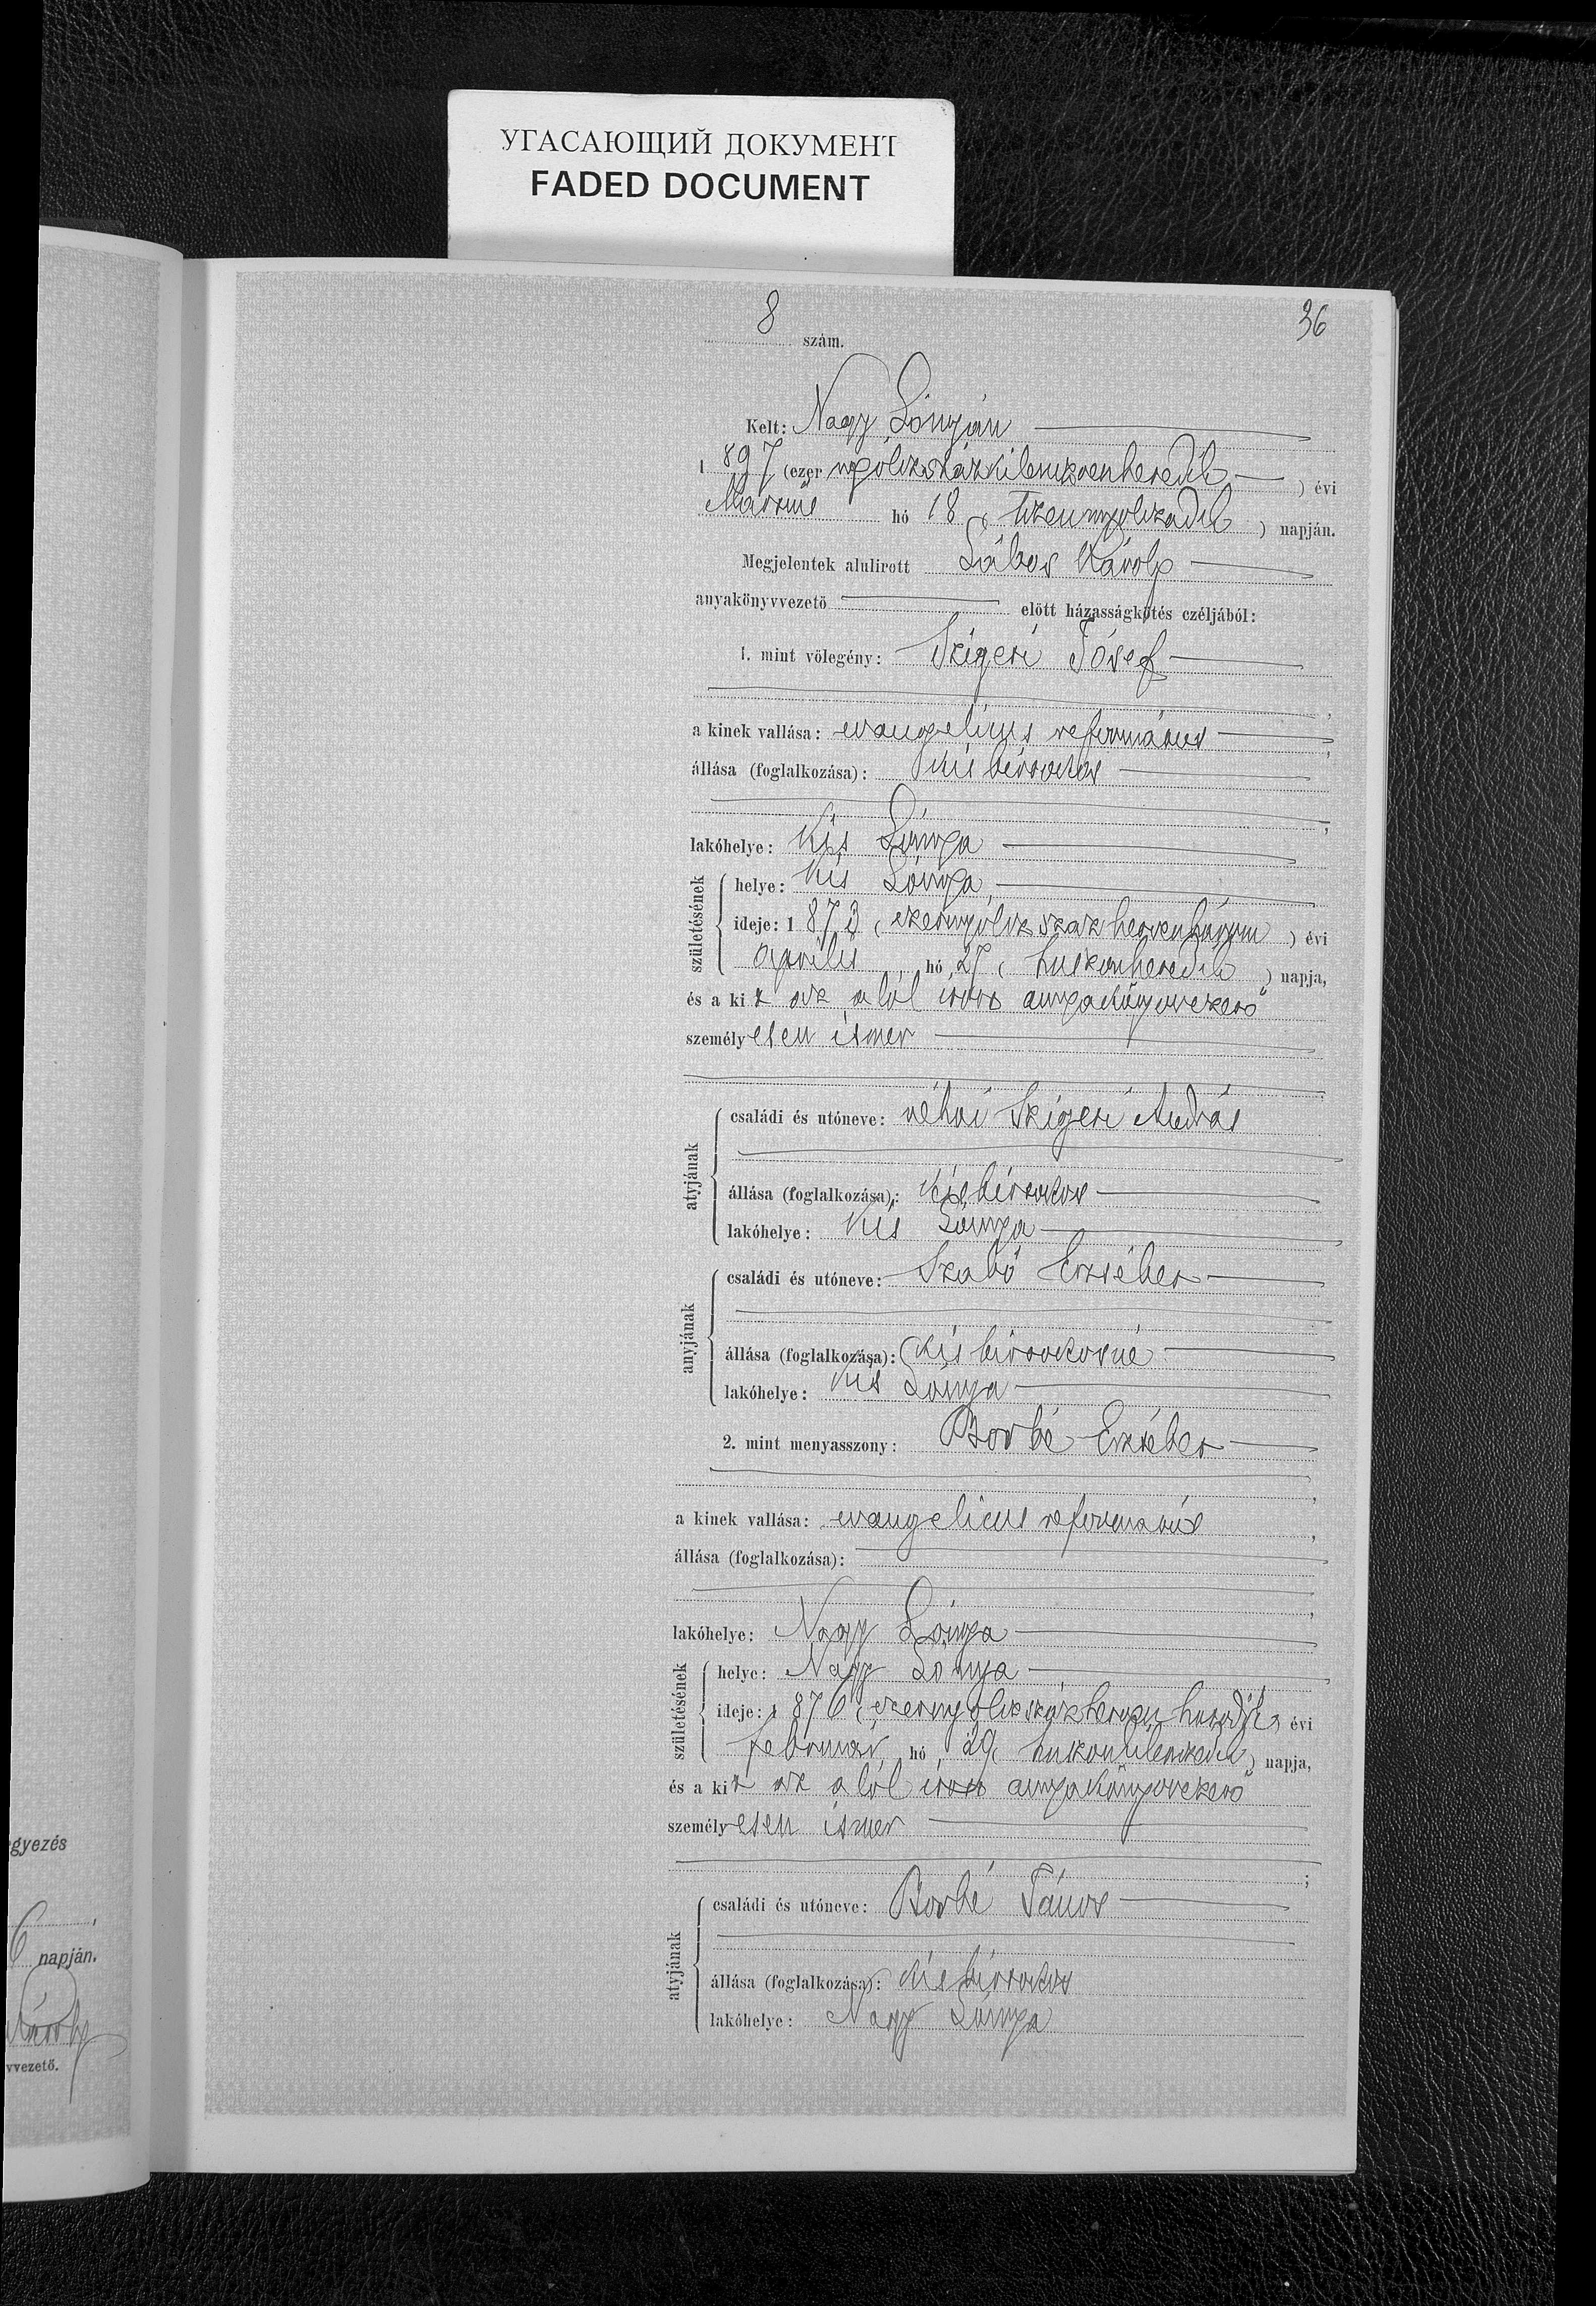 УГАСАЮЩИЙ ДОКУМЕНТ
FADED DOCUMENT
8 szám. 36
Kelt: Nagy Lónyán
1897 (ezer nyólczszázkilenczvenhetedik) évi
Márczius hó 18 (tizennyolczadik) napján.
Megjelentek alulirott Lábos Károly
anyakönyvvezető előtt házasságkötés czéljából:
1. mint vőlegény: Szigeti József
a kinek vallása: evangelicus református
állása (foglalkozása): kis birtokos
lakóhelye: Kis Lónya
születésének
helye: Kis Lónya
ideje: 1873 (ezernyólczszázhetvenhárom) évi
április hó 27 (huszonhetedik) napja,
és a kit az alól írott anyakönyvvezető
személyesen ismer
atyjának
családi és utóneve: néhai Szigeti András
állása (foglalkozása): kisbirtokos
lakóhelye: Kis Lónya
anyjának
családi és utóneve: Szabó Erzsébet
állása (foglalkozása): kis birtokosné
lakóhelye: Kis Lónya
2. mint menyasszony: Borbé Erzsébet
a kinek vallása: evangelicus református
állása (foglalkozása):
lakóhelye: Nagy Lónya
születésének
helye: Nagy Lónya
ideje: 1876 (ezernyolczszázhetven hatodik) évi
február hó 29 (huszonkilenczedik) napja,
és a kit az alól írott anyakönyvvezető
személyesen ismer
;
atyjának
családi és utóneve: Borbé János
állása (foglalkozása): kisbirtokos
lakóhelye: Nagy Lónya
egyezés
6 napján.
Károly
yvvezető.